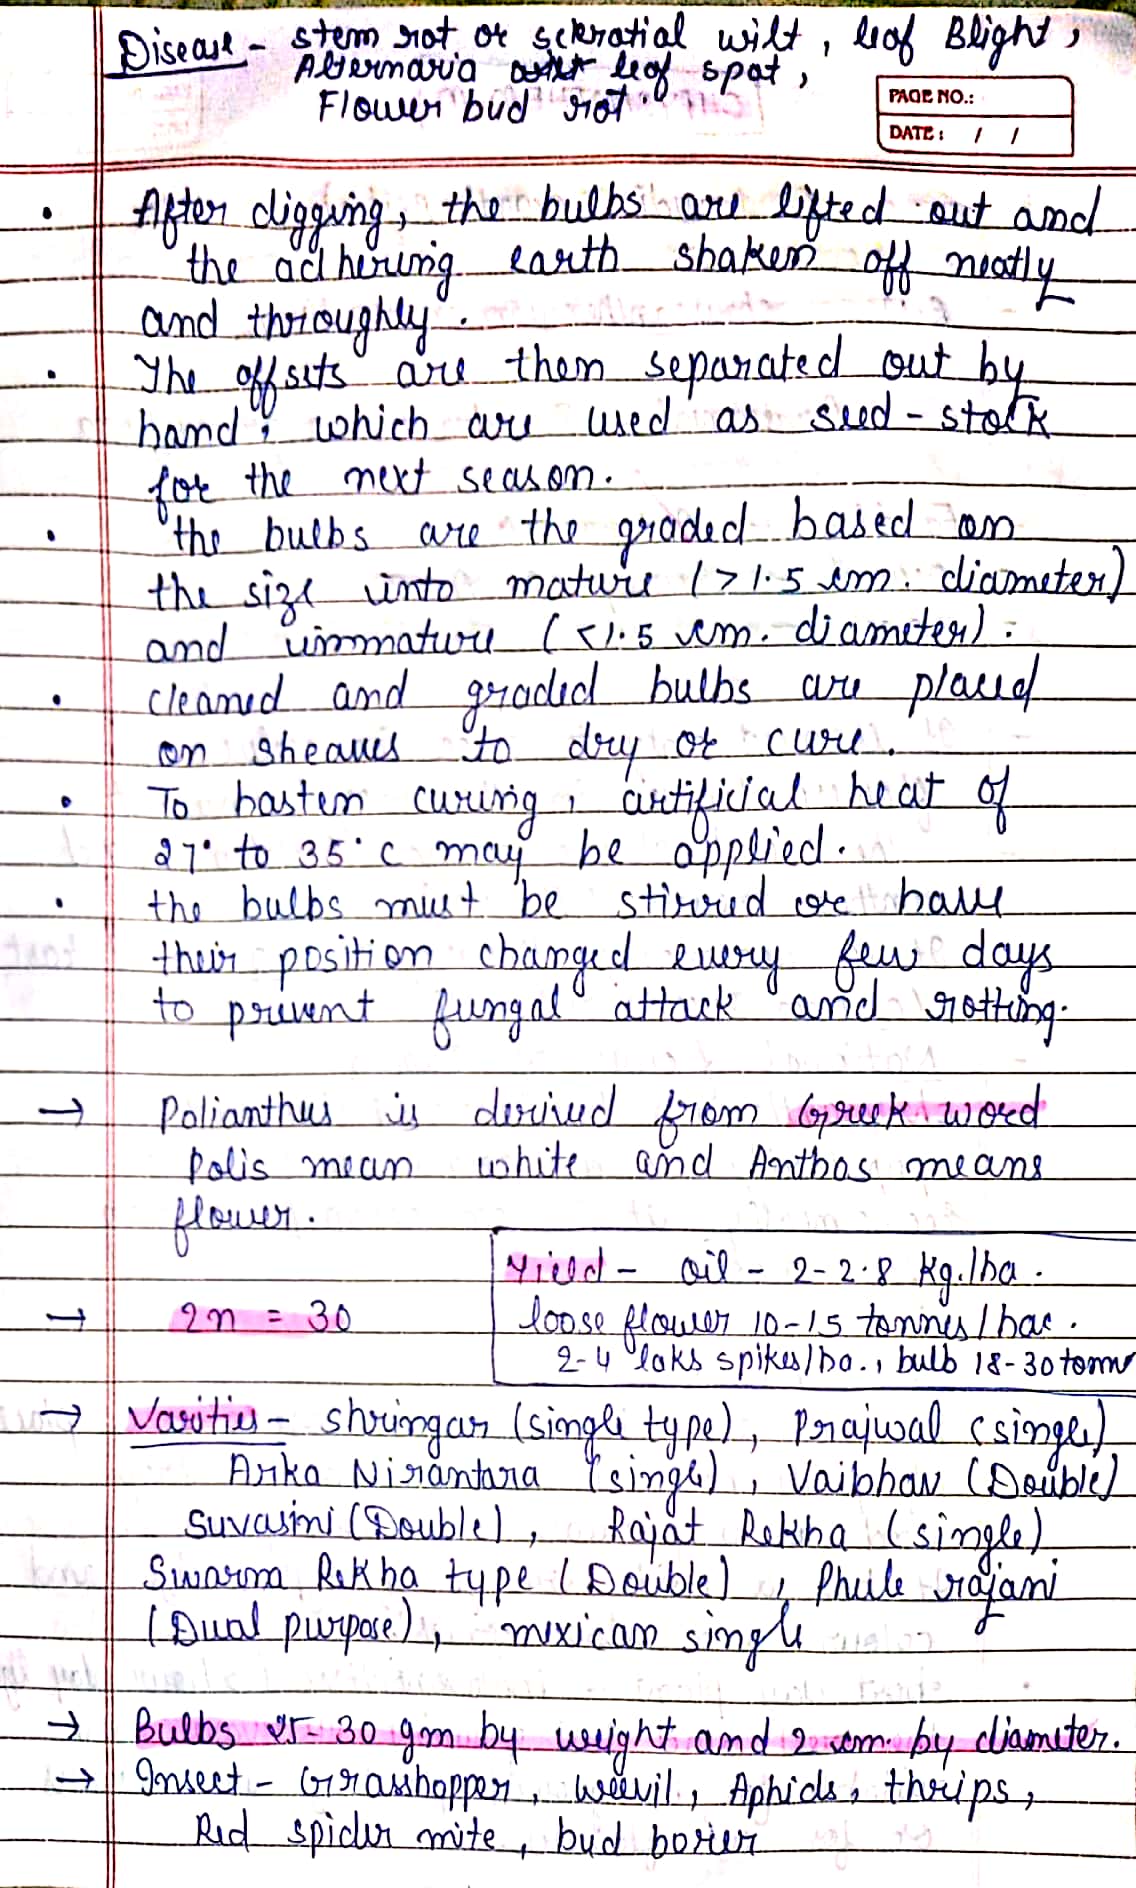 Disease - stem rot or sclerotial wilt, leaf Blight,
Alternaria leaf spot,
Flower bud rot.
PAGE NO.:
DATE: / /
• After digging, the bulbs are lifted out and
the adhering earth shaken off neatly
and throughly.
• The offsets are then separated out by
hand; which are used as seed-stock
for the next season.
• the bulbs are the graded based on
the size into mature (>1.5 cm. diameter)
and immature (<1.5 cm. diameter).
• cleaned and graded bulbs are placed
on sheaves to dry or cure.
• To hasten curing, artificial heat of
27° to 35°c may be applied.
• the bulbs must be stirred or have
their position changed every few days
to prevent fungal attack and rotting.
→ Polianthus is derived from Greek word
Polis mean white and Anthos means
flower.
Yield - oil - 2-2.8 kg./ha.
→ 2n = 30
loose flower 10-15 tonnes/hac.
2-4 laks spikes/ha., bulb 18-30 tonn
→ Varities - Shringar (single type), Prajwal (single)
Arka Nirantara (single), Vaibhav (Double)
Suvasini (Double), Rajat Rekha (single)
Swarna Rekha type (Double), Phule rajani
(Dual purpose), mexican single
→ Bulbs 25-30 gm by weight and 2 cm. by diameter.
→ Insect - Grasshopper, weevil, Aphids, thrips,
Red spider mite, bud borer